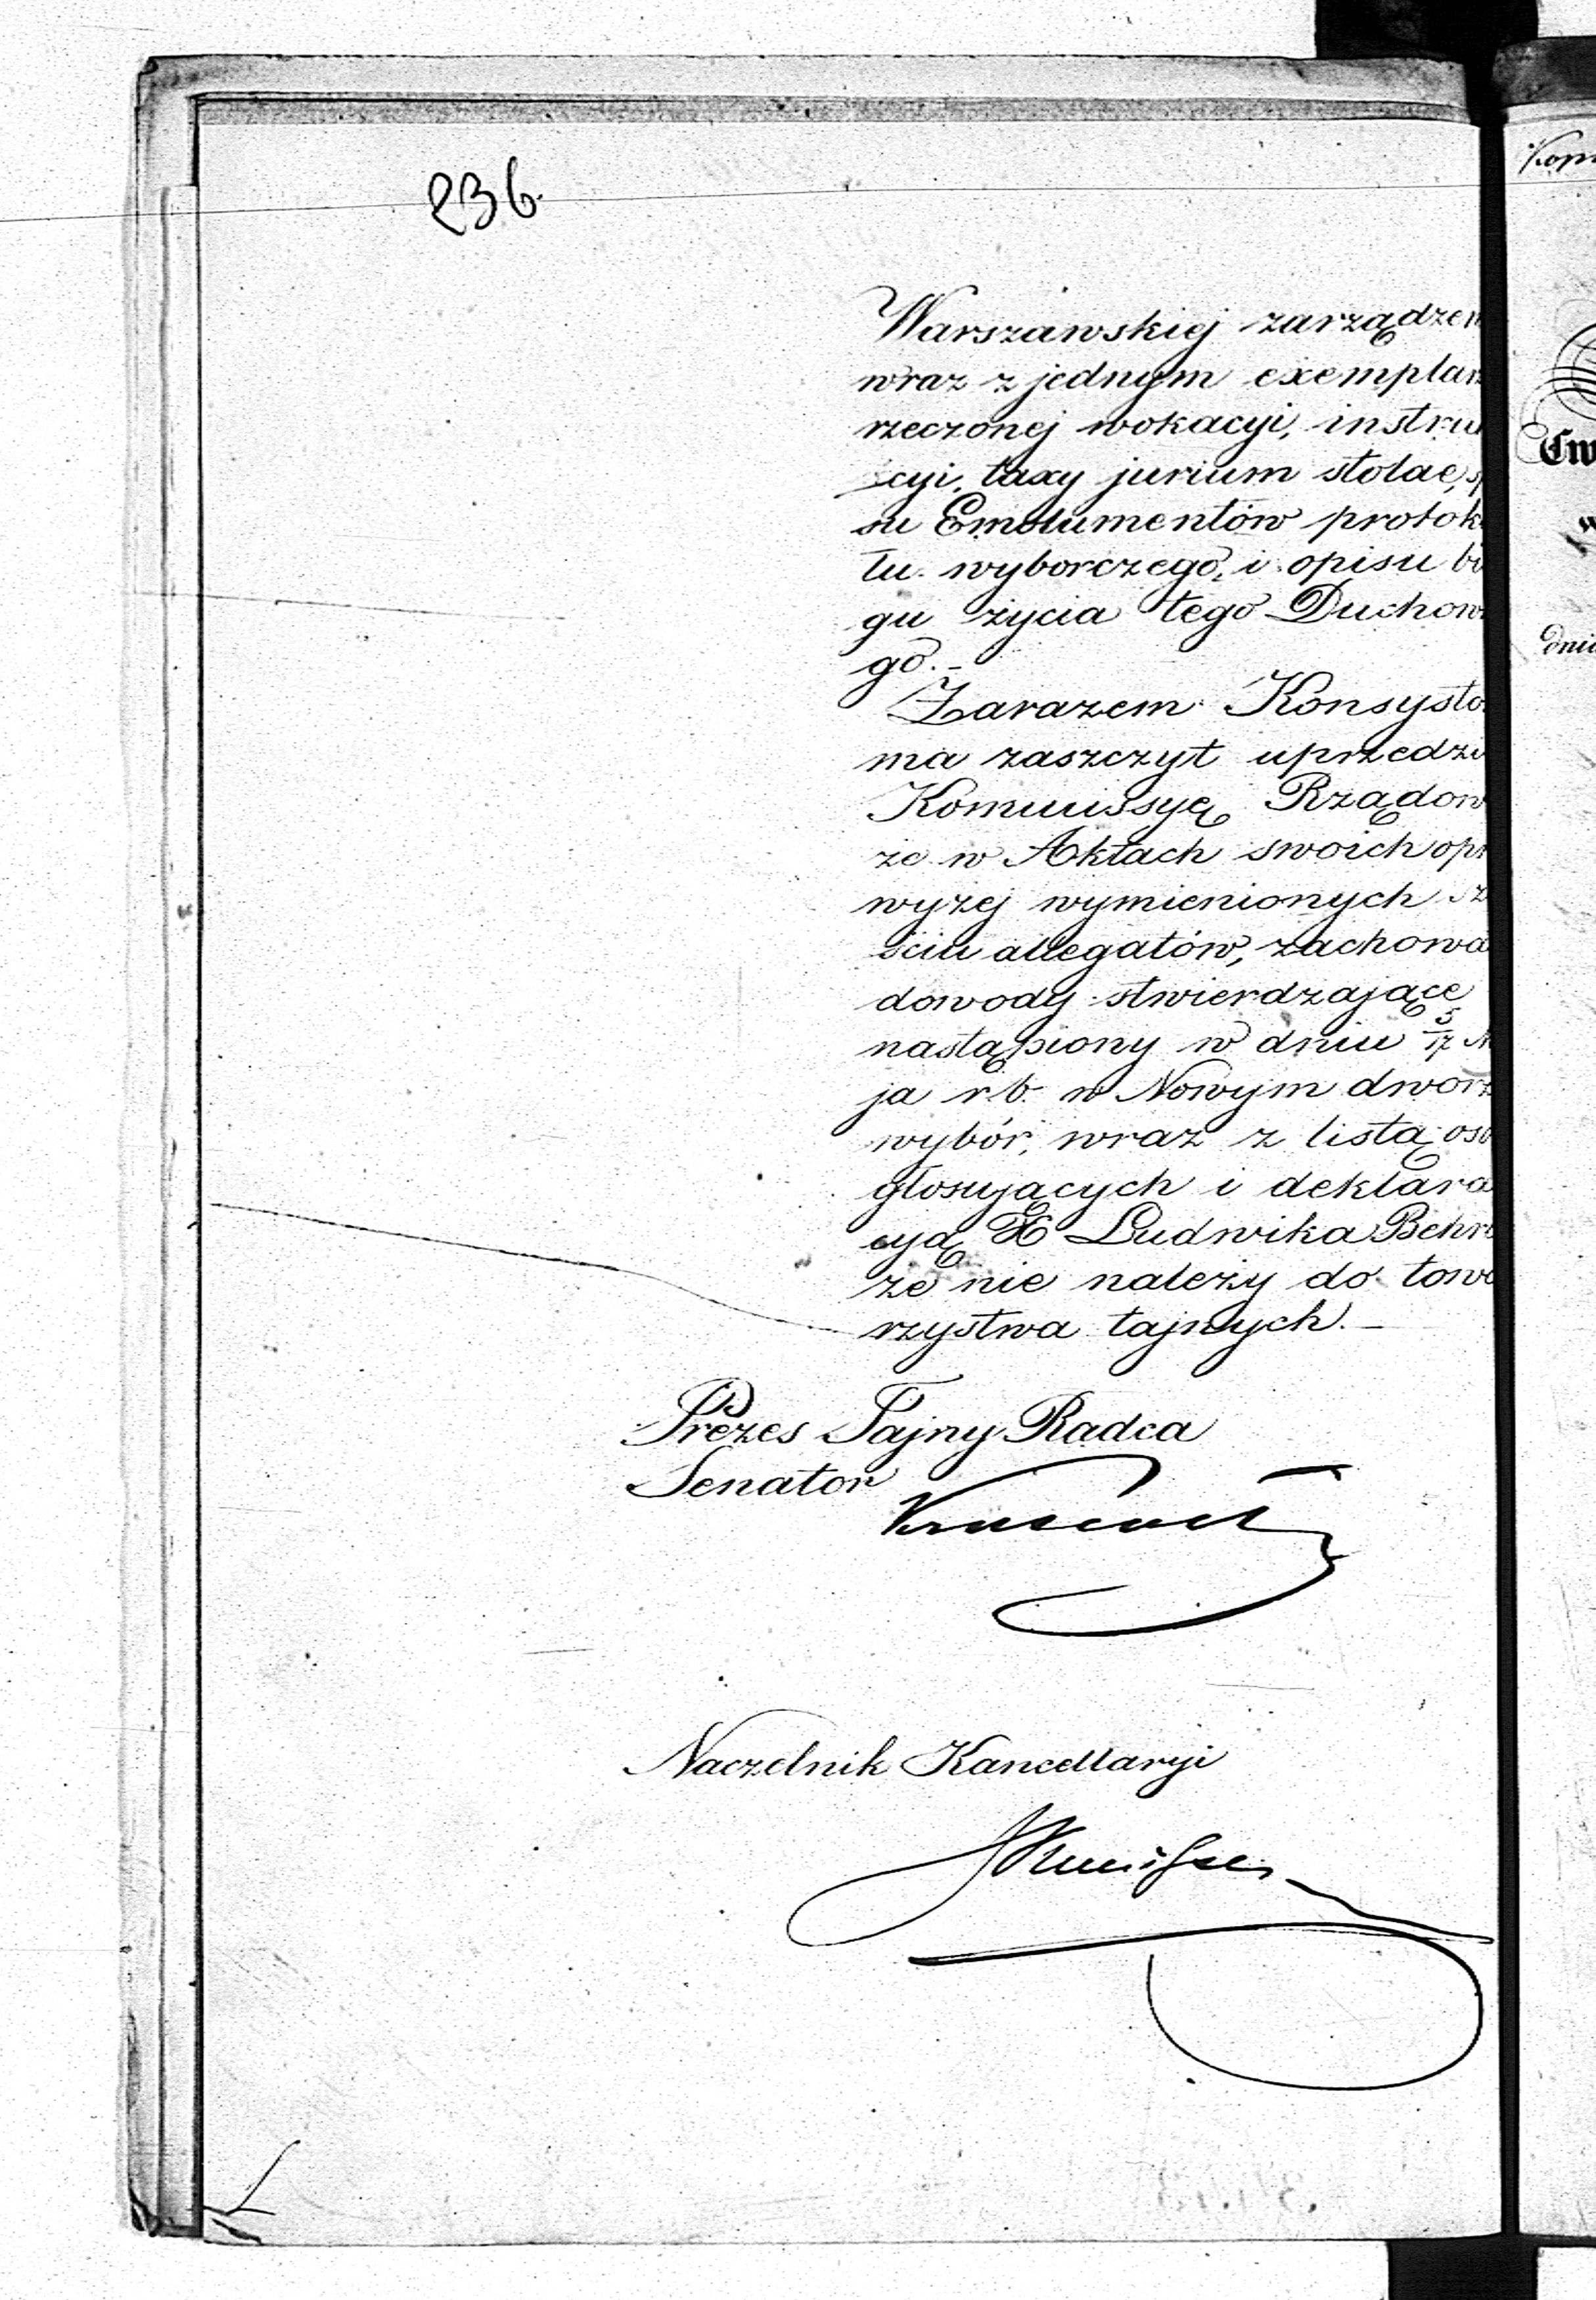 236.
Warszawskiej zarządzen
wraz z jednym exemplar
rzeczonej wokacyi, instru
cyi, taxy jurium stolae,
su Emolumentów protok
łu wyborczego, i opisu bi
gu życia tego Duchow
go.-
Zarazem Konsysto
ma zaszczyt uprzedzi
Kommissyę Rządow
że w Aktach swoich opr
wyżej wymienionych sz
ściu allegatów, zachowa
dowody stwierdzające
nastąpiony w dniu 5/17 M
ja r.b. w Nowym dworz
wybór, wraz z listą oso
głosujących i deklara
cyą X Ludwika Behr
że nie należy do towa
rzystwa tajnych.-
Prezes Tajny Radca
Senator
Naczelnik Kancellaryi
Kop
Cw
w
dnia